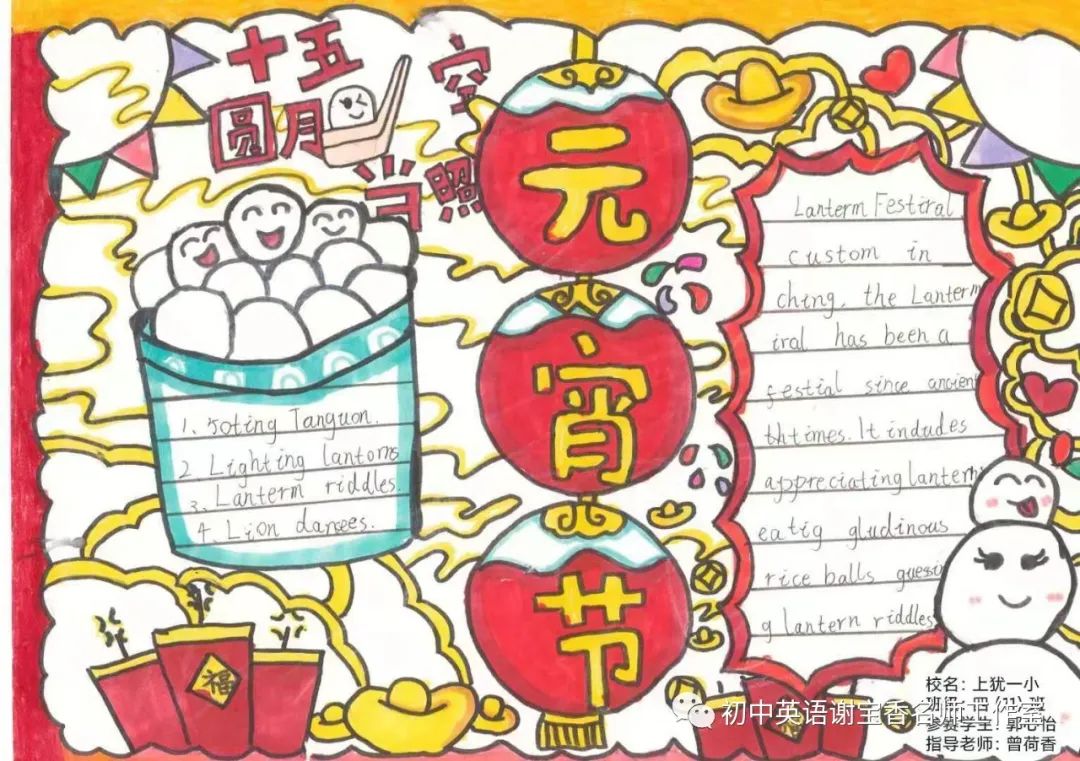 十五
圆月
空
当照
元
宵
节
1、Yoting Tanguon.
2. Lighting lantoms
3. Lanterm riddles.
4. Lion dances.
Lanterm Festiral
custom in
ching, the Lanterm
iral has been a
festial since ancient
thtimes. It indudes
appreciating lantern
eatig gludinous
rice balls guessi
g lantern riddles
福
校名：上犹一小
班
参赛学生：郭 怡
指导老师：曾荷香
初中英语谢宝香名师工作室